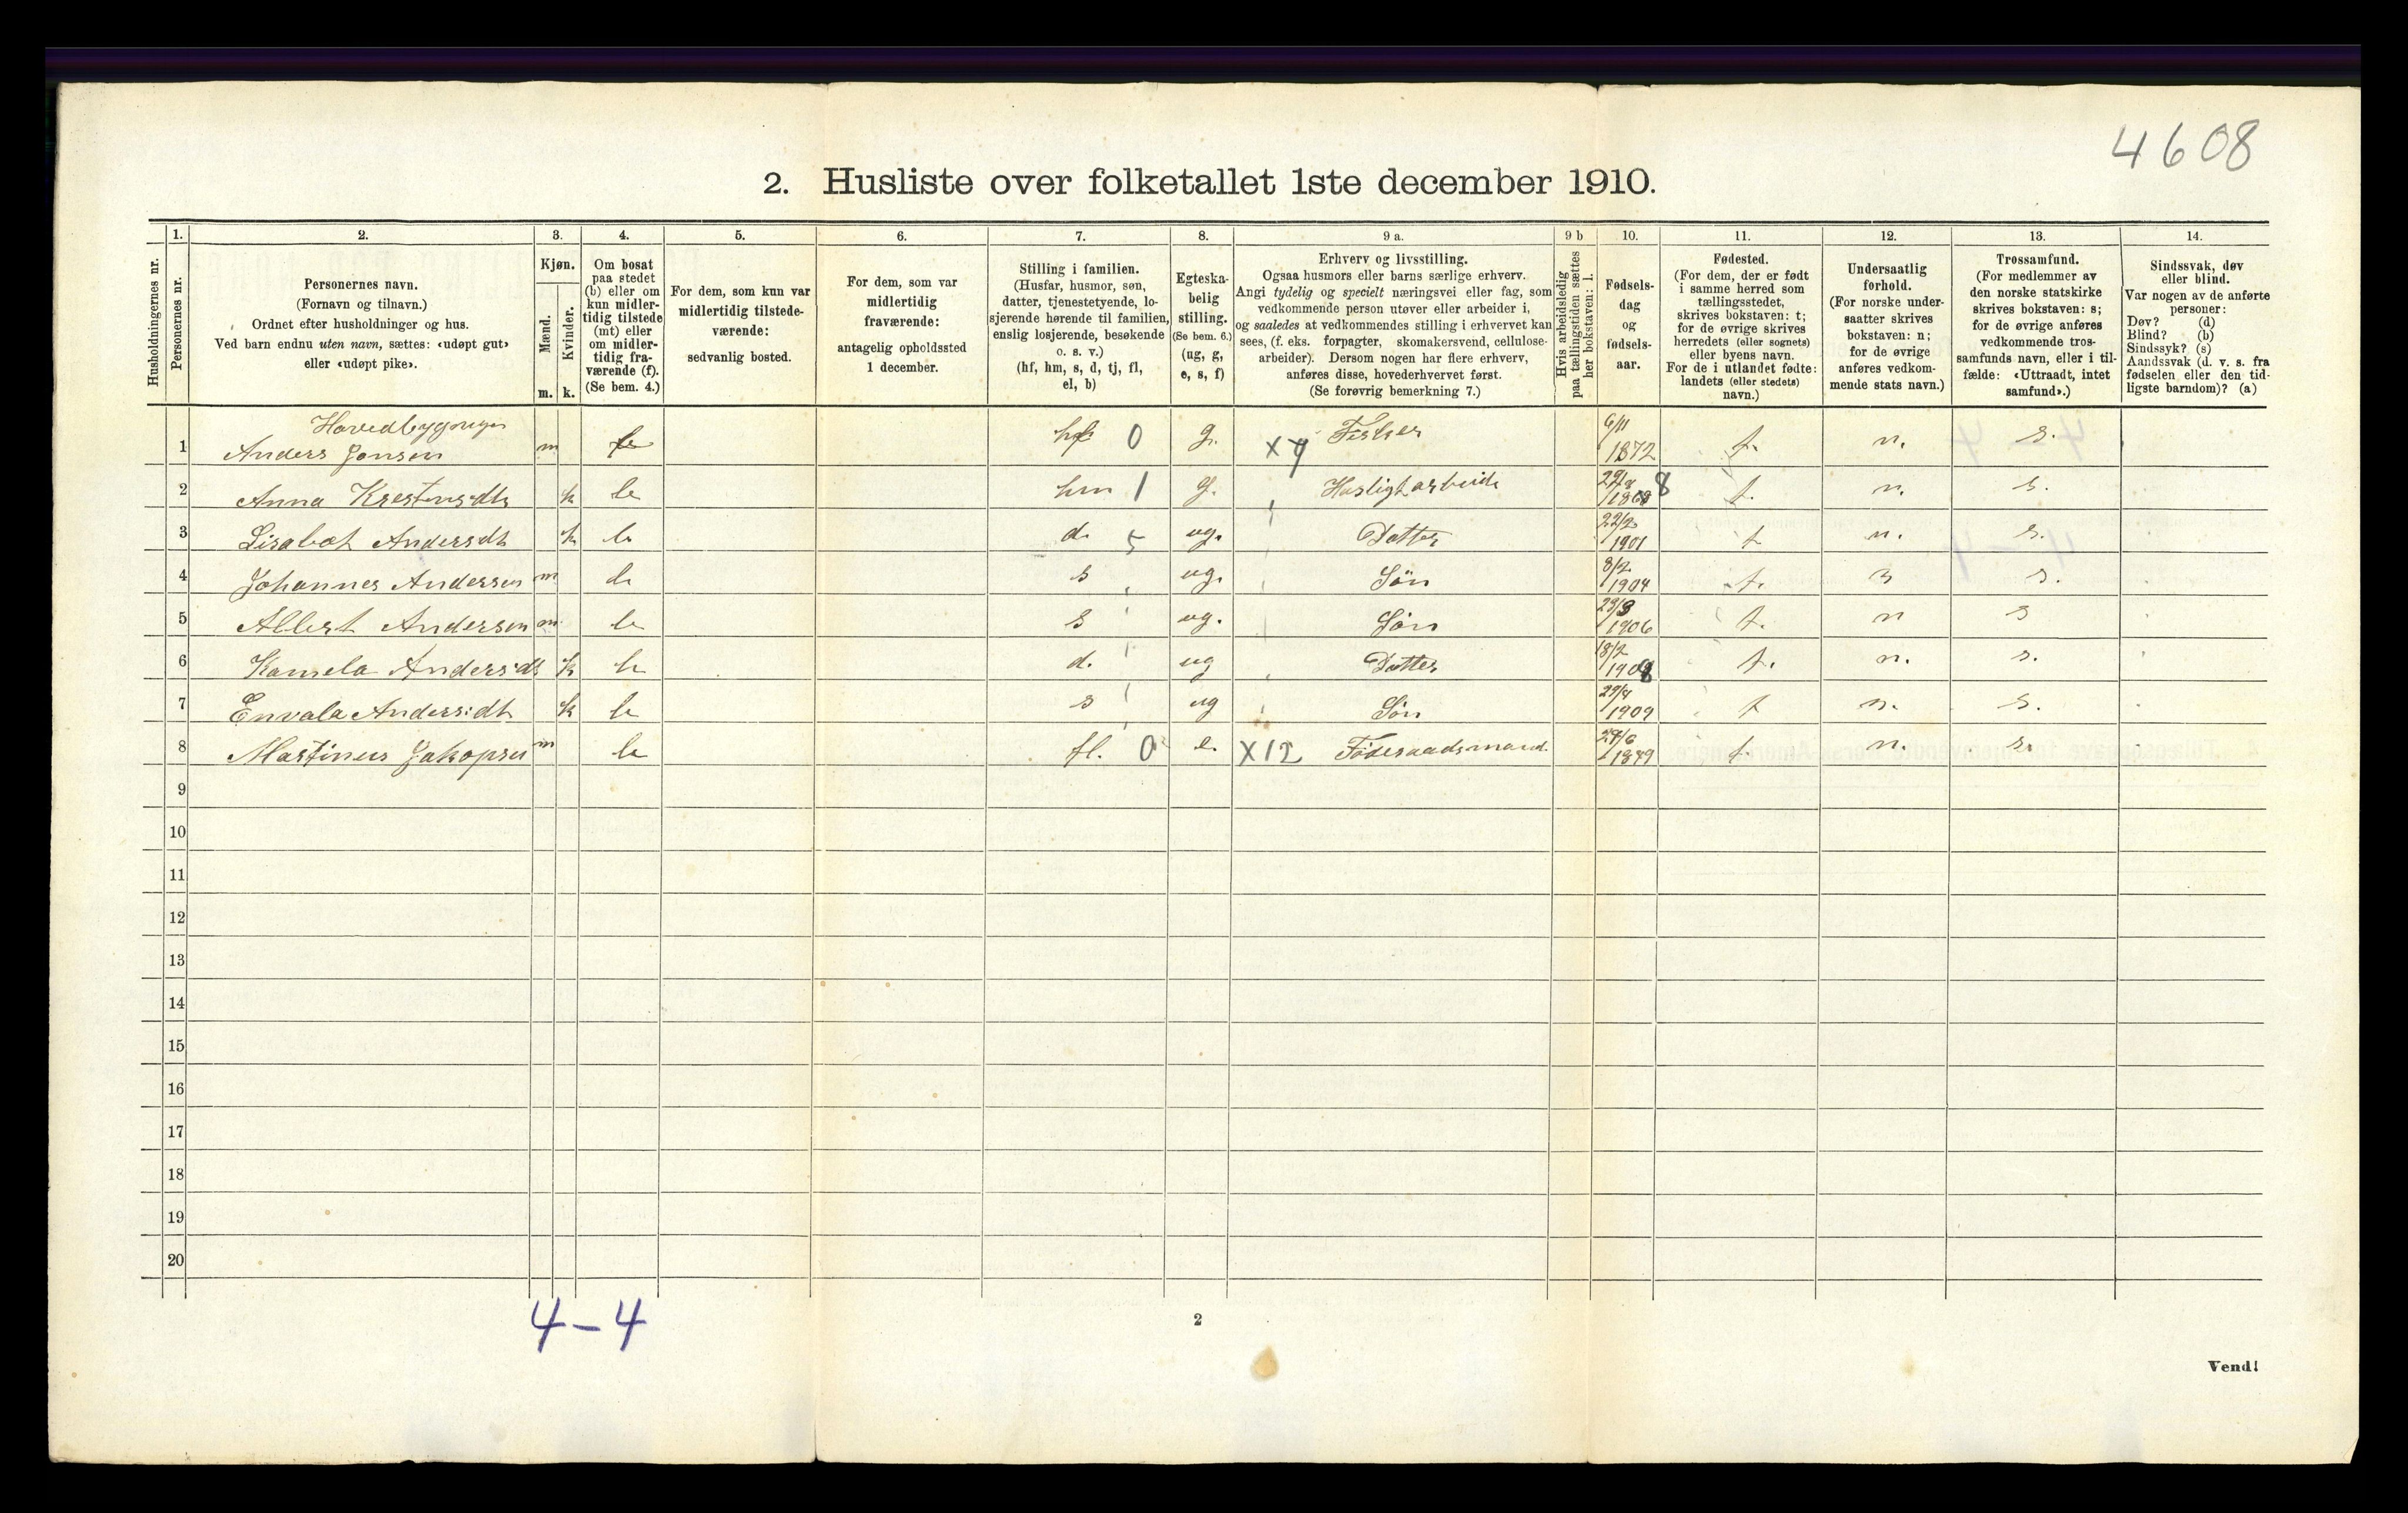 4608
2. Husliste over folketallet 1ste december 1910.
Husholdningernes nr.
1.
Personernes nr.
2.
Personernes navn.
(Fornavn og tilnavn.)
Ordnet efter husholdninger og hus.
Ved barn endnu uten navn, sættes: «udøpt gut»
eller «udøpt pike».
3.
Kjøn.
Mænd.
m.
Kvinder.
k.
4.
Om bosat
paa stedet
(b) eller om
kun midler-
tidig tilstede
(mt) eller
om midler-
tidig fra-
værende (f).
(Se bem. 4.)
5.
For dem, som kun var
midlertidig tilstede-
værende:
sedvanlig bosted.
6.
For dem, som var
midlertidig
fraværende:
antagelig opholdssted
1 december.
7.
Stilling i familien.
(Husfar, husmor, søn,
datter, tjenestetyende, lo-
sjerende hørende til familien,
enslig losjerende, besøkende
o. s. v.)
(hf, hm, s, d, tj, fl,
el, b)
8.
Egteska-
belig
stilling.
(Se bem. 6.)
(ug, g,
e, s, f)
9 a.
Erhverv og livsstilling.
Ogsaa husmors eller barns særlige erhverv.
Angi tydelig og specielt næringsvei eller fag, som
vedkommende person utøver eller arbeider i,
og saaledes at vedkommendes stilling i erhvervet kan
sees, (f. eks. forpagter, skomakersvend, cellulose-
arbeider). Dersom nogen har flere erhverv,
anføres disse, hovederhvervet først.
(Se forøvrig bemerkning 7.)
9 b
Hvis arbeidsledig
paa tællingstiden sættes
her bokstaven: l.
10.
Fødsels-
dag
og
fødsels-
aar.
11.
Fødested.
(For dem, der er født
i samme herred som
tællingsstedet,
skrives bokstaven: t;
for de øvrige skrives
herredets (eller sognets)
eller byens navn.
For de i utlandet fødte:
landets (eller stedets)
navn.)
12.
Undersaatlig
forhold.
(For norske under-
saatter skrives
bokstaven: n;
for de øvrige
anføres vedkom-
mende stats navn.)
13.
Trossamfund.
(For medlemmer av
den norske statskirke
skrives bokstaven: s;
for de øvrige anføres
vedkommende tros-
samfunds navn, eller i til-
fælde: «Uttraadt, intet
samfund».)
14.
Sindssvak, døv
eller blind.
Var nogen av de anførte
personer:
Døv? (d)
Blind? (b)
Sindssyk? (s)
Aandssvak (d. v. s. fra
fødselen eller den tid-
ligste barndom)? (a)
Hovedbygninge
1 Anders Jonsen m b hf 0 g. x 4 Fisker 6/11 1872 t. n. s.
2 Anna Krestensdtr k b hm 1 g. Husligt arbeide 1868 8 t. n. s.
3 Lisabet Andersdtr k b d. 5 ug. Datter 22/2 1901 t n. s.
4 Johannes Andersen m b s ug. Sön 8/2 1904 t. n s.
5 Albert Andersen m b s ug. Sön 1906 t. n s
6 Kamela Andersdt k b d. ug Datter 18/2 1908 t. n. s.
7 Envala Andersdt k b s ug Sön 1909 t n. s.
8 Martinus Jakopsen m b fl. 0 e. X12 Föderaadsmand. 1849 t. n. s.
9
10
11
12
13
14
15
16
17
18
19
20
4-4
2
Vend!